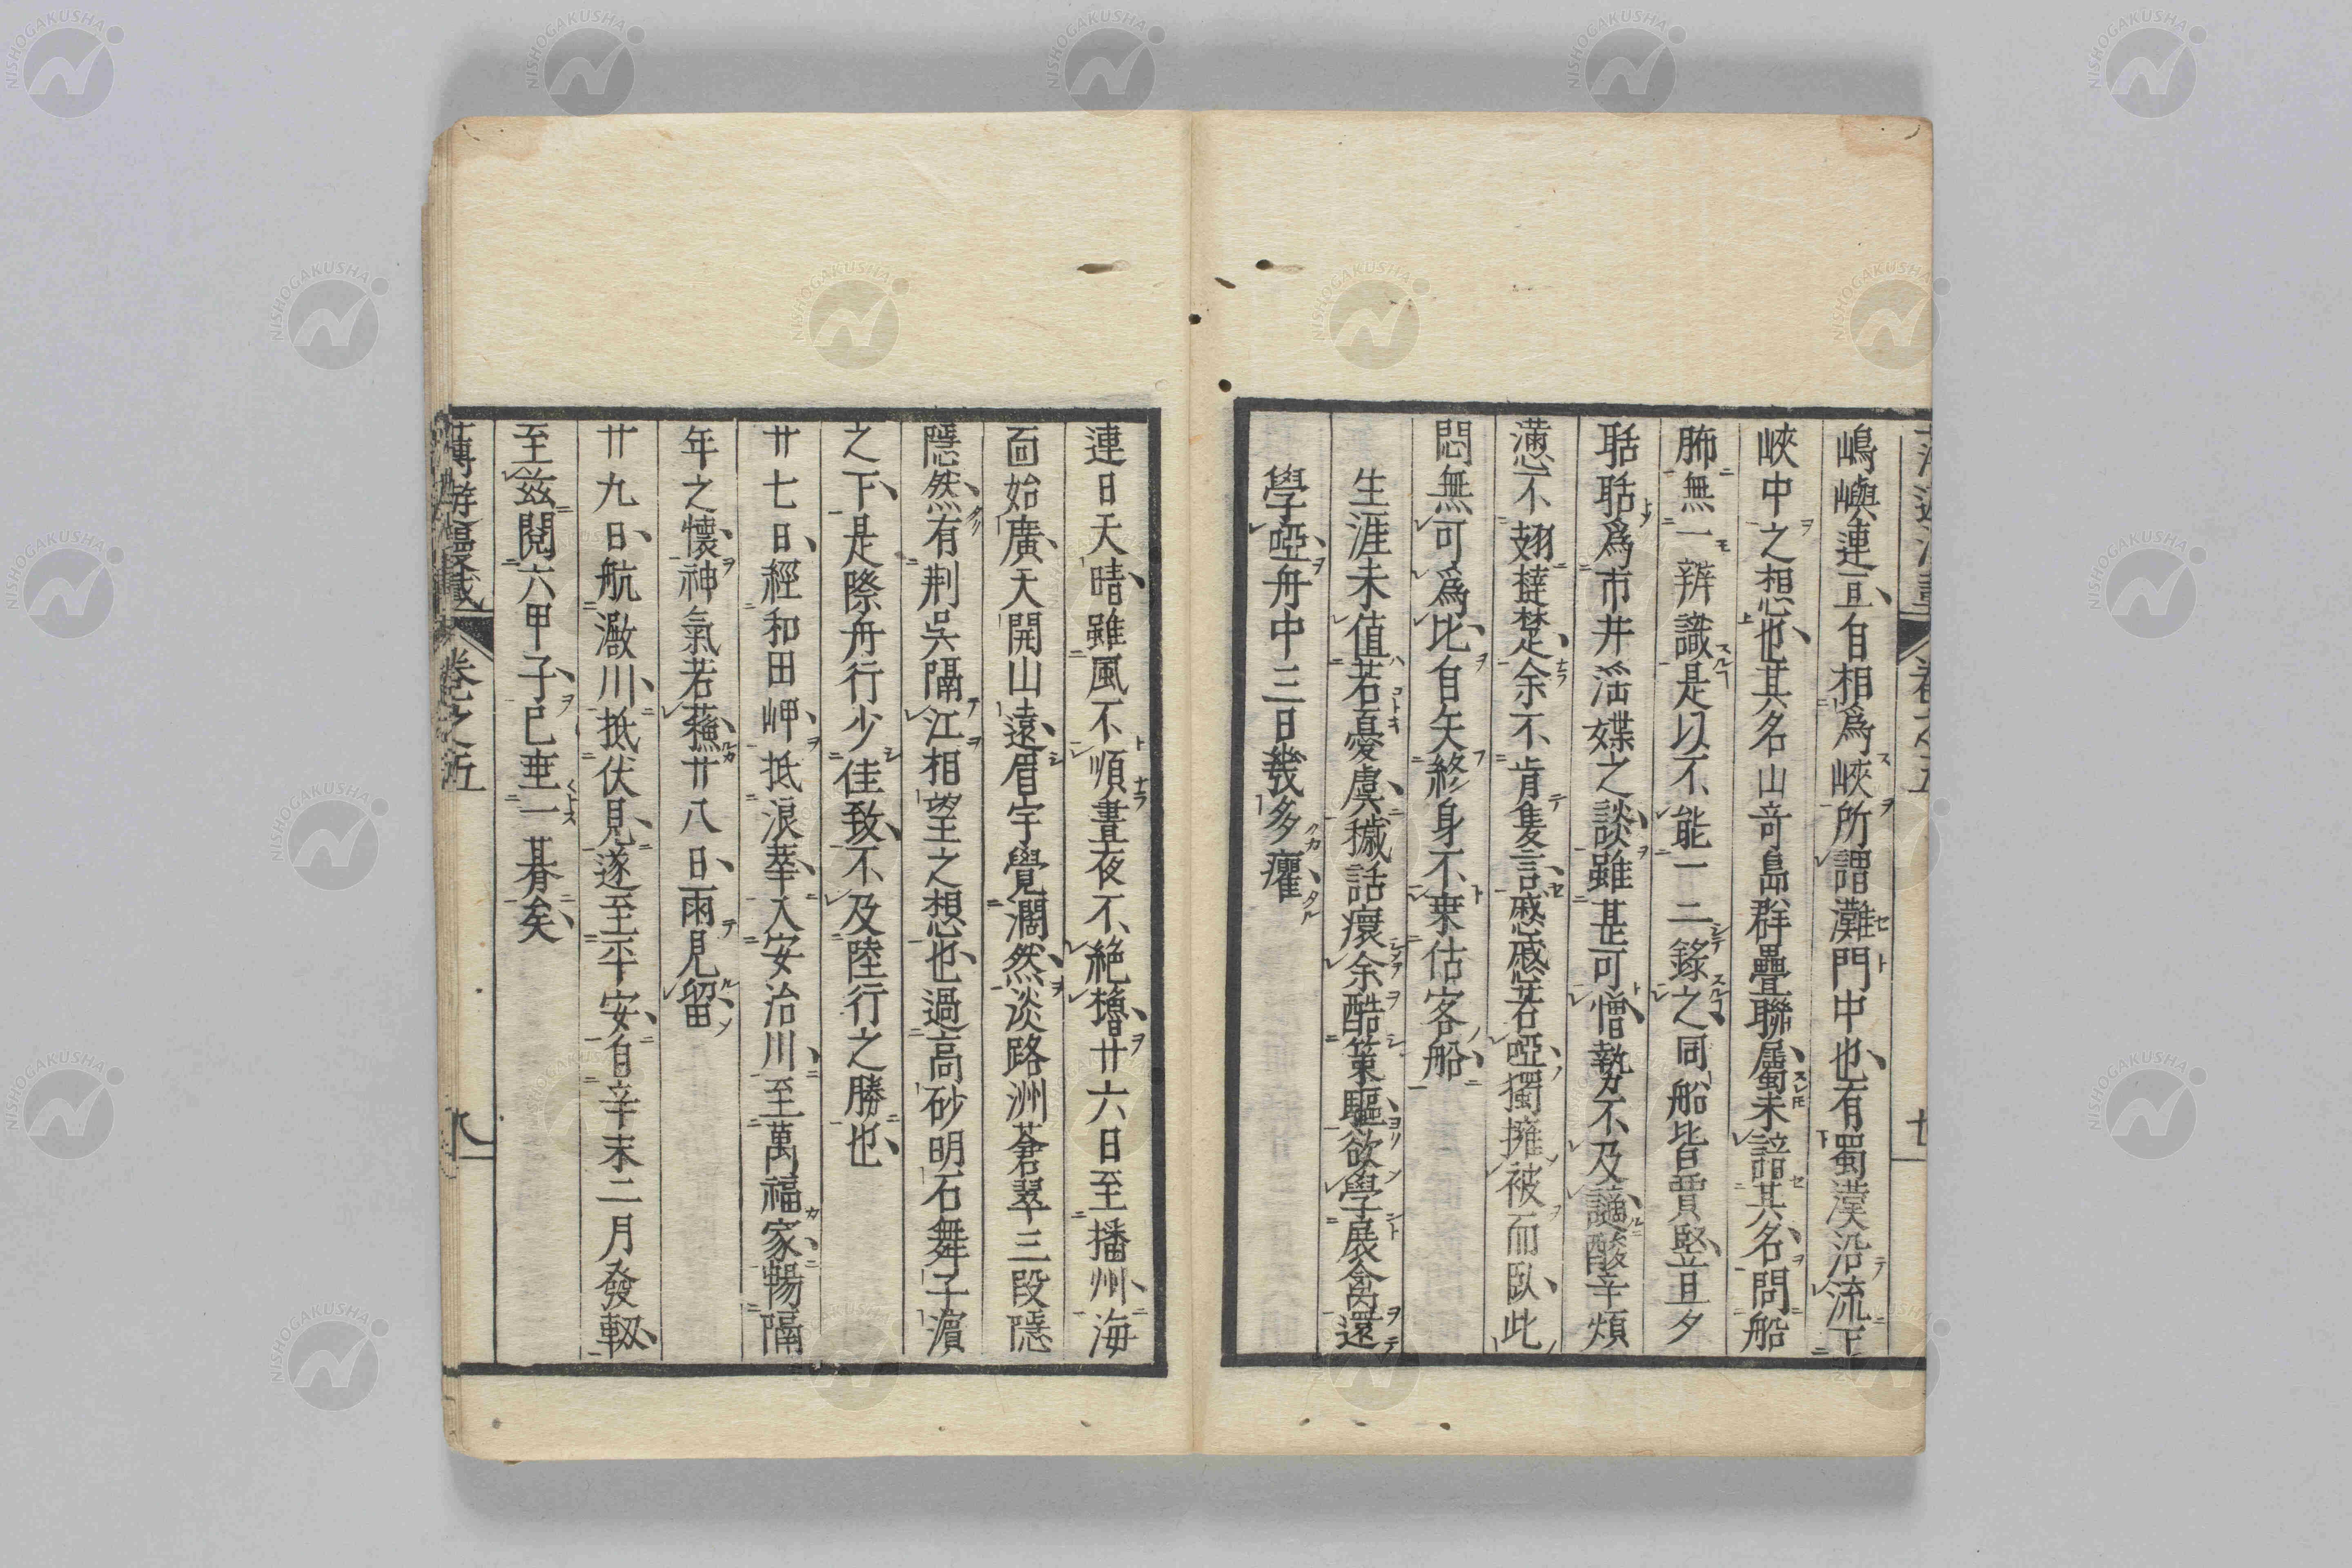 嶋嶼連亘自相爲峽所謂灘門中也有蜀漢沿流下
峽中之想也其名山奇島群疊聯屬未諳其名問船
師無一辨識是以不能一二錄之同船皆賈豎旦夕
聒聒爲市井滛媟之談雖甚可憎執力不及讁酸辛煩
懣不翅撻楚余不肯隻言慼慼若啞獨擁被而臥此
悶無可爲比自矢終身不乗估客船
生涯未値若憂虞穢話瘝余酷策驅欲學展禽還
學啞舟中三日幾多癯
連日天晴雖風不順晝夜不絶櫓廿六日至播州海
面始廣天開山遠眉宇覺濶然淡路洲蒼翠三段隱
隱然有荆呉隔江相望之想也過高砂明石舞子濵
之下是際舟行少佳致不及陸行之勝也
廿七日經和田岬抵浪華入安治川至萬福家暢隔
年之懷神氣若蘓廿八日雨見留
廿九日航澱川抵伏見遂至平安自辛未二月發軔
至兹閲六甲子已垂一朞矣
卷之五